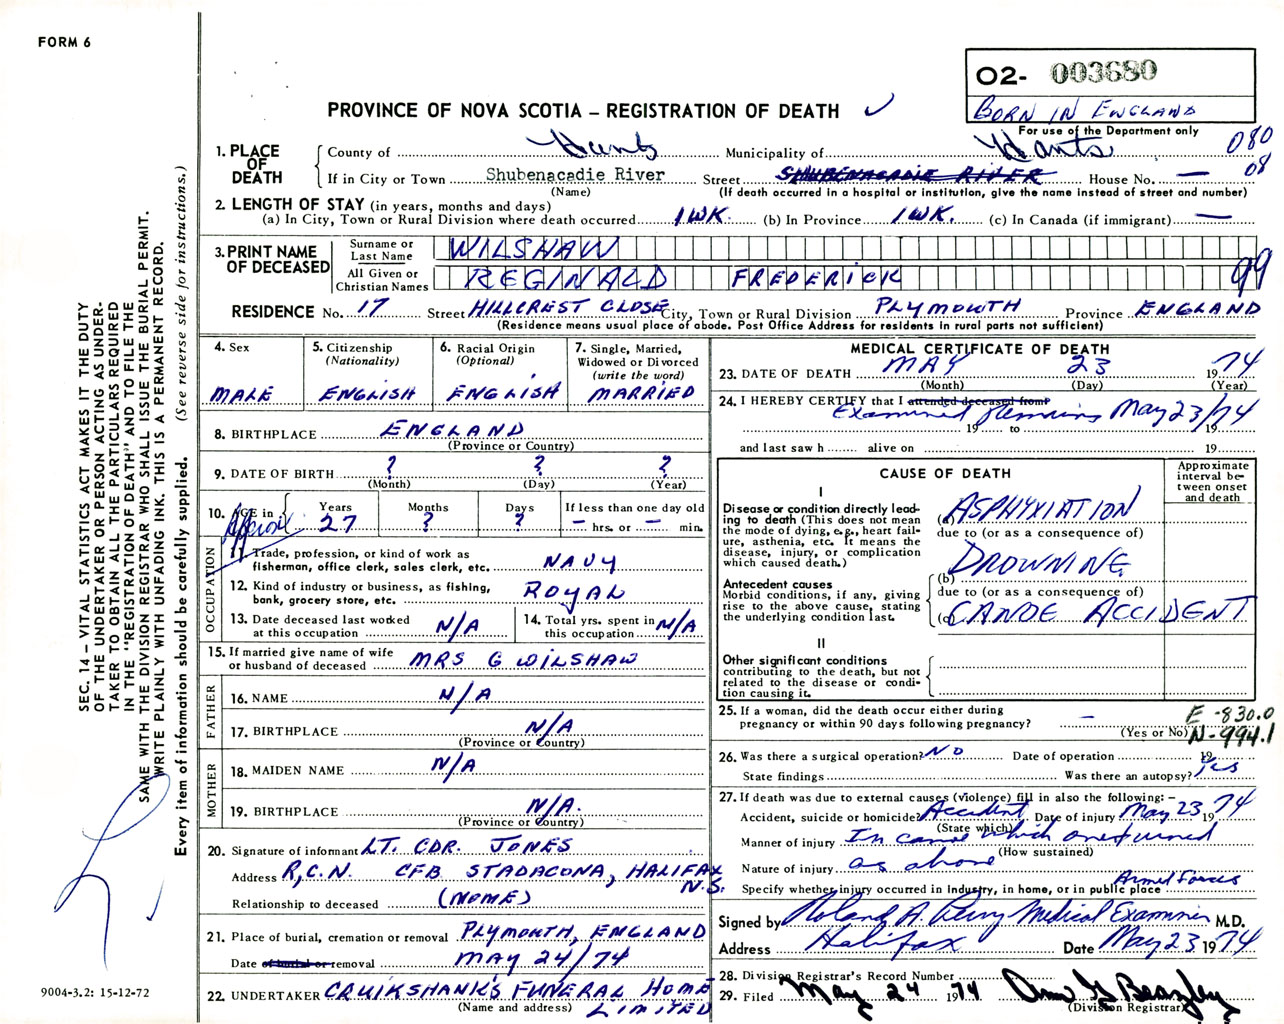 FORM 6
O2- 003680
BORN IN ENGLAND
For use of the Department only
PROVINCE OF NOVA SCOTIA – REGISTRATION OF DEATH ✓
080
08
1. PLACE OF DEATH
County of Hants Municipality of Hants
If in City or Town Shubenacadie River Street SHUBENACADIE RIVER House No. —
(Name) (If death occurred in a hospital or institution, give the name instead of street and number)
2. LENGTH OF STAY (in years, months and days)
(a) In City, Town or Rural Division where death occurred 1 WK. (b) In Province 1 WK. (c) In Canada (if immigrant) —
3. PRINT NAME OF DECEASED
Surname or Last Name WILSHAW
All Given or Christian Names REGINALD FREDERICK
99
RESIDENCE No. 17 Street HILLCREST CLOSE City, Town or Rural Division PLYMOUTH Province ENGLAND
(Residence means usual place of abode. Post Office Address for residents in rural parts not sufficient)
4. Sex
MALE
5. Citizenship
(Nationality)
ENGLISH
6. Racial Origin
(Optional)
ENGLISH
7. Single, Married,
Widowed or Divorced
(write the word)
MARRIED
8. BIRTHPLACE ENGLAND
(Province or Country)
9. DATE OF BIRTH ? ? ?
(Month) (Day) (Year)
10. AGE in Years Months Days If less than one day old
Approx 27 ? ? — hrs. or — min.
OCCUPATION
11. Trade, profession, or kind of work as
fisherman, office clerk, sales clerk, etc. NAVY
12. Kind of industry or business, as fishing,
bank, grocery store, etc. ROYAL
13. Date deceased last worked
at this occupation N/A
14. Total yrs. spent in
this occupation N/A
15. If married give name of wife
or husband of deceased MRS G WILSHAW
FATHER
16. NAME N/A
17. BIRTHPLACE N/A
(Province or Country)
MOTHER
18. MAIDEN NAME N/A
19. BIRTHPLACE N/A.
(Province or Country)
20. Signature of informant LT. CDR. JONES
Address R.C.N. CFB STADACONA, HALIFAX
N.S.
Relationship to deceased (NONE)
21. Place of burial, cremation or removal PLYMOUTH, ENGLAND
Date of burial or removal MAY 24/74
22. UNDERTAKER CRUIKSHANKS FUNERAL HOME
(Name and address) LIMITED
MEDICAL CERTIFICATE OF DEATH
23. DATE OF DEATH MAY 23 1974
(Month) (Day) (Year)
24. I HEREBY CERTIFY that I attended deceased from
Examined remains May 23/74
19 to 19
and last saw h alive on 19
CAUSE OF DEATH
Approximate
interval be-
tween onset
and death
I
Disease or condition directly lead-
ing to death (This does not mean
the mode of dying, e.g., heart fail-
ure, asthenia, etc. It means the
disease, injury, or complication
which caused death.)
(a) ASPHYXIATION
due to (or as a consequence of)
Antecedent causes
Morbid conditions, if any, giving
rise to the above cause, stating
the underlying condition last.
(b) DROWNING
due to (or as a consequence of)
(c) CANOE ACCIDENT
II
Other significant conditions
contributing to the death, but not
related to the disease or condi-
tion causing it.
25. If a woman, did the death occur either during
pregnancy or within 90 days following pregnancy? —
(Yes or No)
E-830.0
N-994.1
26. Was there a surgical operation? NO Date of operation 19
State findings Was there an autopsy? Yes
27. If death was due to external causes (violence) fill in also the following: –
Accident, suicide or homicide? Accident Date of injury May 23 1974
(State which)
Manner of injury In canoe which overturned
(How sustained)
Nature of injury as above
Specify whether injury occurred in Industry, in home, or in public place Armed Forces
Signed by Roland A. Perry Medical Examiner M.D.
Address Halifax Date May 23 1974
28. Division Registrar's Record Number
29. Filed May 24 1974 Ann G Beazley
(Division Registrar)
SEC. 14 – VITAL STATISTICS ACT MAKES IT THE DUTY
OF THE UNDERTAKER OR PERSON ACTING AS UNDER-
TAKER TO OBTAIN ALL THE PARTICULARS REQUIRED
IN THE "REGISTRATION OF DEATH" AND TO FILE THE
SAME WITH THE DIVISION REGISTRAR WHO SHALL ISSUE THE BURIAL PERMIT.
WRITE PLAINLY WITH UNFADING INK. THIS IS A PERMANENT RECORD.
Every item of information should be carefully supplied. (See reverse side for instructions.)
9004-3.2: 15-12-72